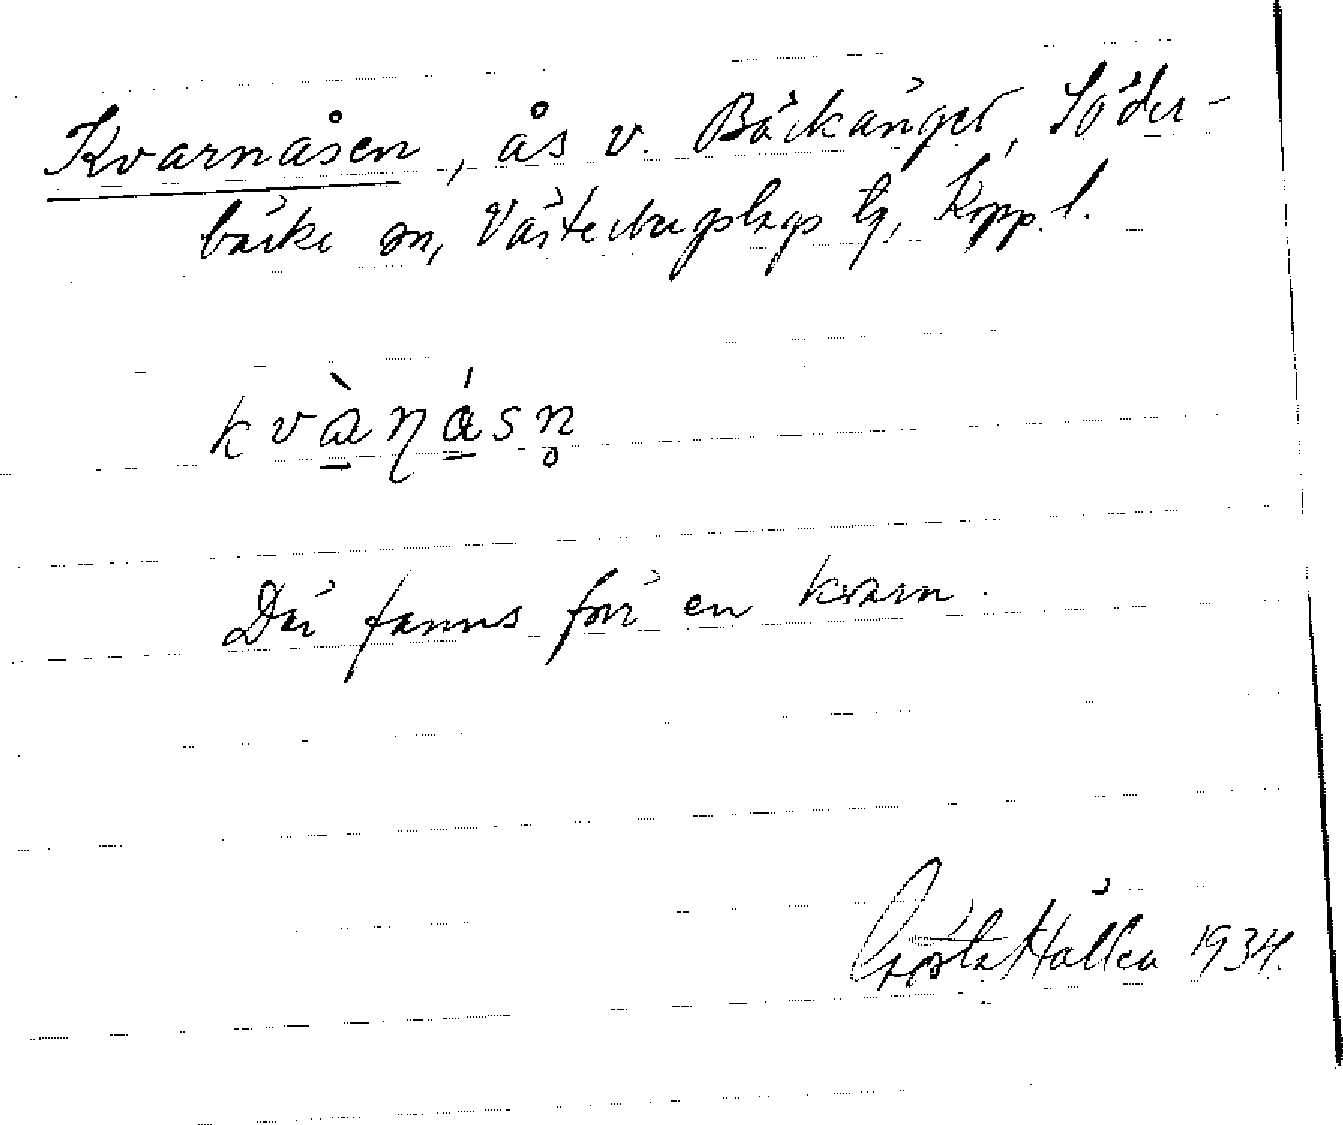 Kvarnåsen, ås v. Bäckänget, Söder-
bärke sn, Västerbergslags tg, Kopp. l.
kvànásn̥
Där fanns förr en kvarn.
Gösta Hållen 1934.